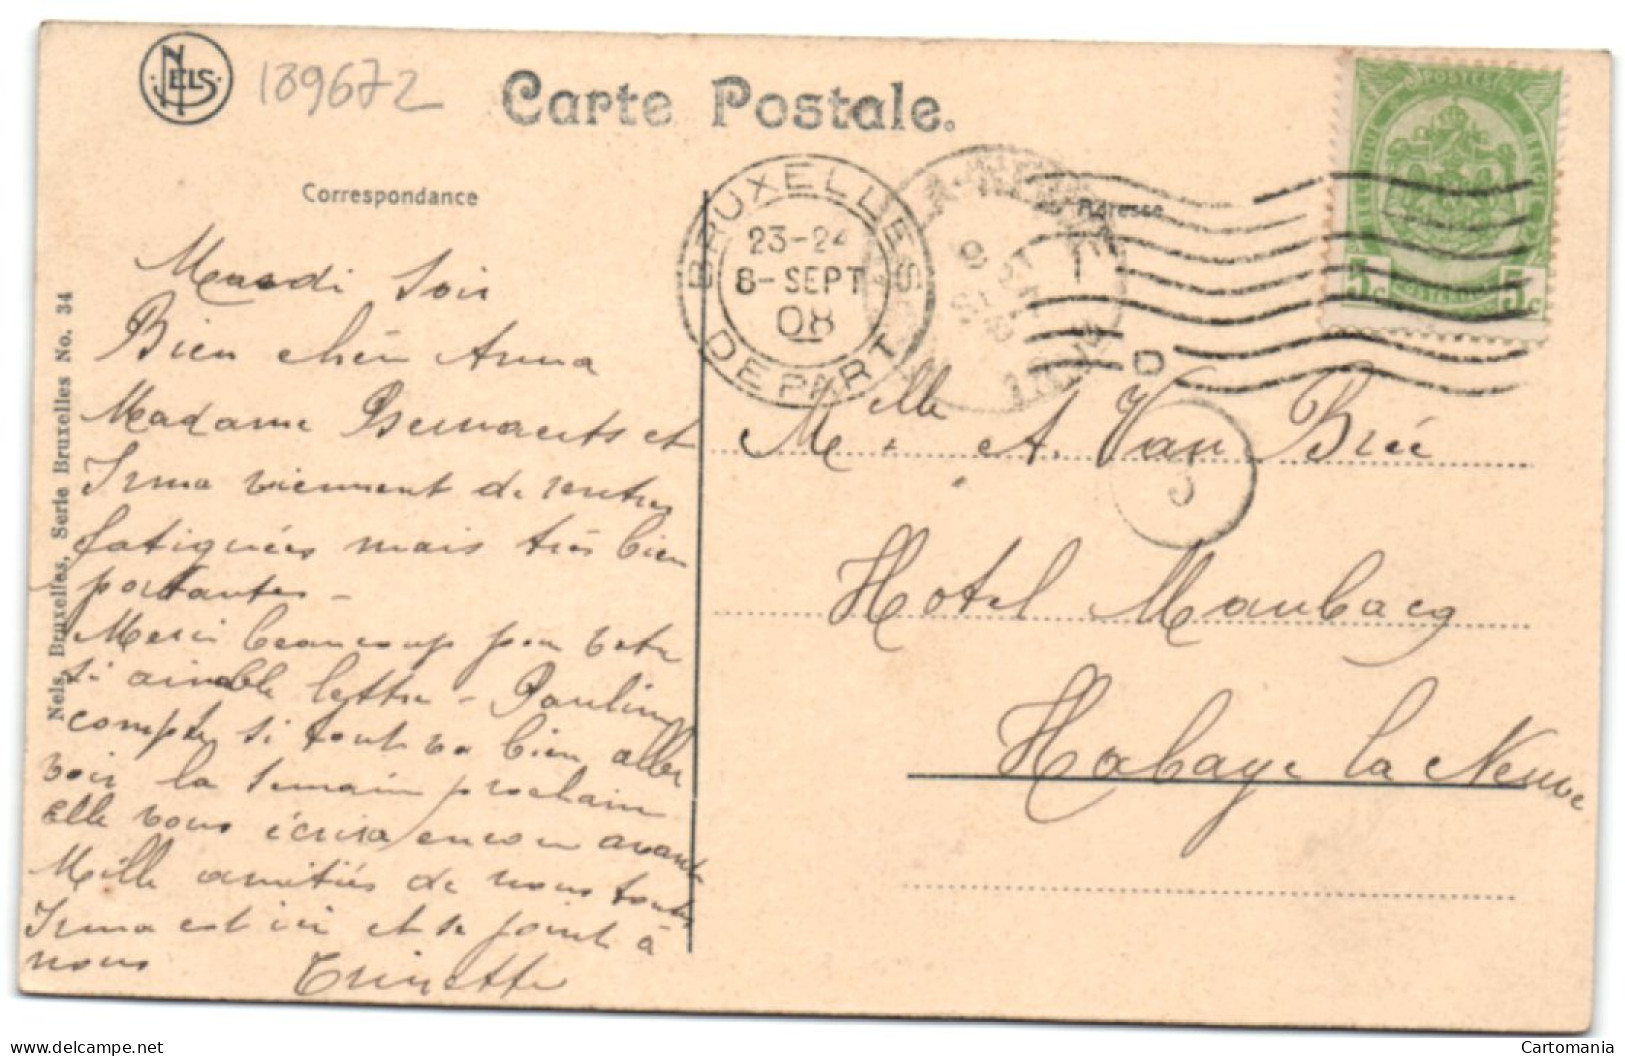 NELS
189672
Carte Postale.
Correspondance
Adresse
BRUXELLES
23-24
8-SEPT
08
DEPART
POSTES
5c 5c
D
3
Nels, Bruxelles, Serie Bruxelles No. 34
Mardi Soir
Bien chère Anna
Madame Bernaerts et
Irma viennent de rentrer
fatiguées mais très bien
portantes -
Merci beaucoup pour votre
si aimable lettre - Pauline
compte si tout va bien aller
voir la semaine prochaine
elle vous écrira encore avant
Mille amitiés de nous toutes
Irma est ici et se joint à
nous
Trinette
Melle A. Van Brée
Hotel Maubacq
Habaye la Neuve
Cartomania